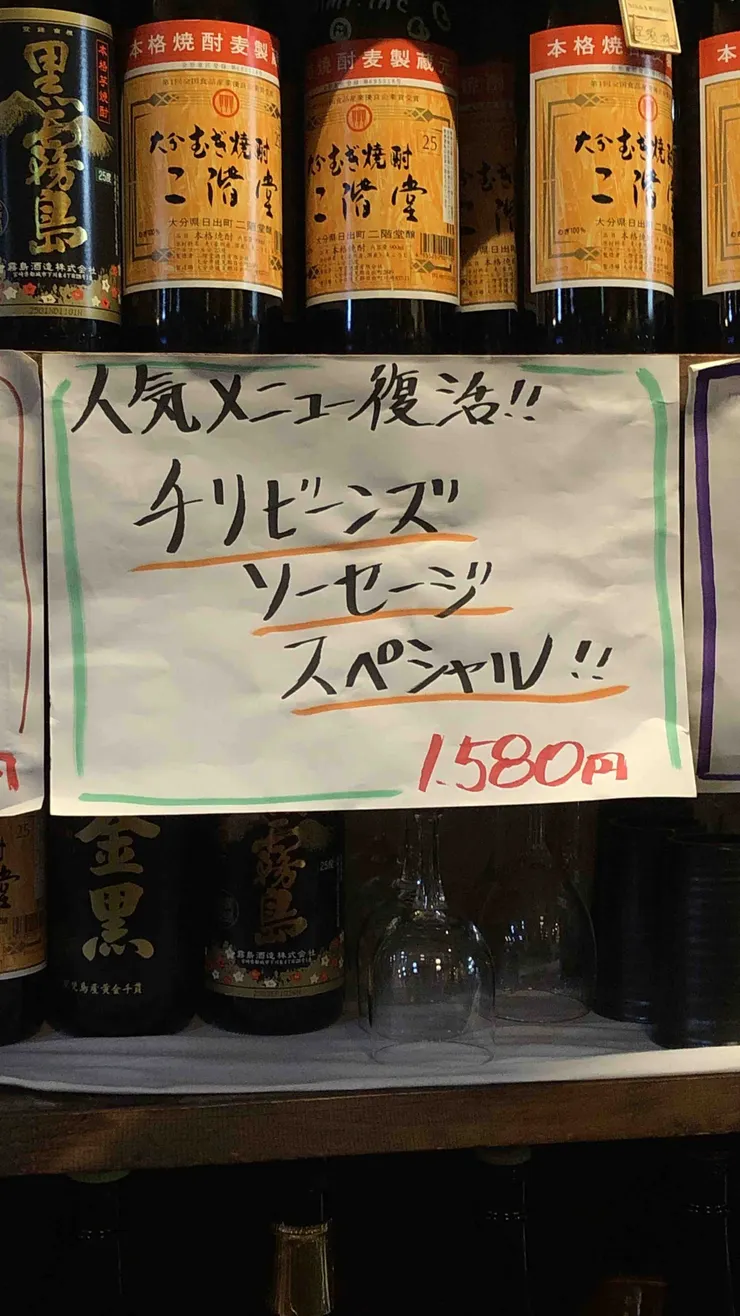 黒霧島
本格芋焼酎
25度
霧島酒造株式会社
2501N01101H
本格焼酎麦製蔵
大分むぎ焼酎
二階堂
大分県日出町 二階堂醸
焼酎麦製蔵元
大分むぎ焼酎
25
二階堂
大分県日出町 二階堂醸
本格焼酎
本格焼酎
大分むぎ焼
二階堂
大分県日出町 二階堂
むぎ100%
本
人気メニュー復活!!
チリビーンズ
ソーセージ
スペシャル!!
1.580円
円
金黒
児島産黄金千貫
霧島
25度
霧島酒造株式会社